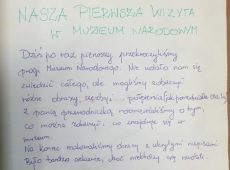 NASZA PIERWSZA WIZYTA
W MUZEUM NARODOWYM
Dziś po raz pierwszy przekroczyliśmy
progi Muzeum Narodowego. Nie udało nam się
zwiedzić całego, ale mogliśmy zobaczyć
różne obrazy, rzeźby,
Z panią przewodniczką rozmawialiśmy o tym,
co można zobaczyć i co znajduje się w
muzeum.
Na koniec malowaliśmy obrazy z ukrytymi napisami.
Było bardzo ciekawie, choć niektórzy się